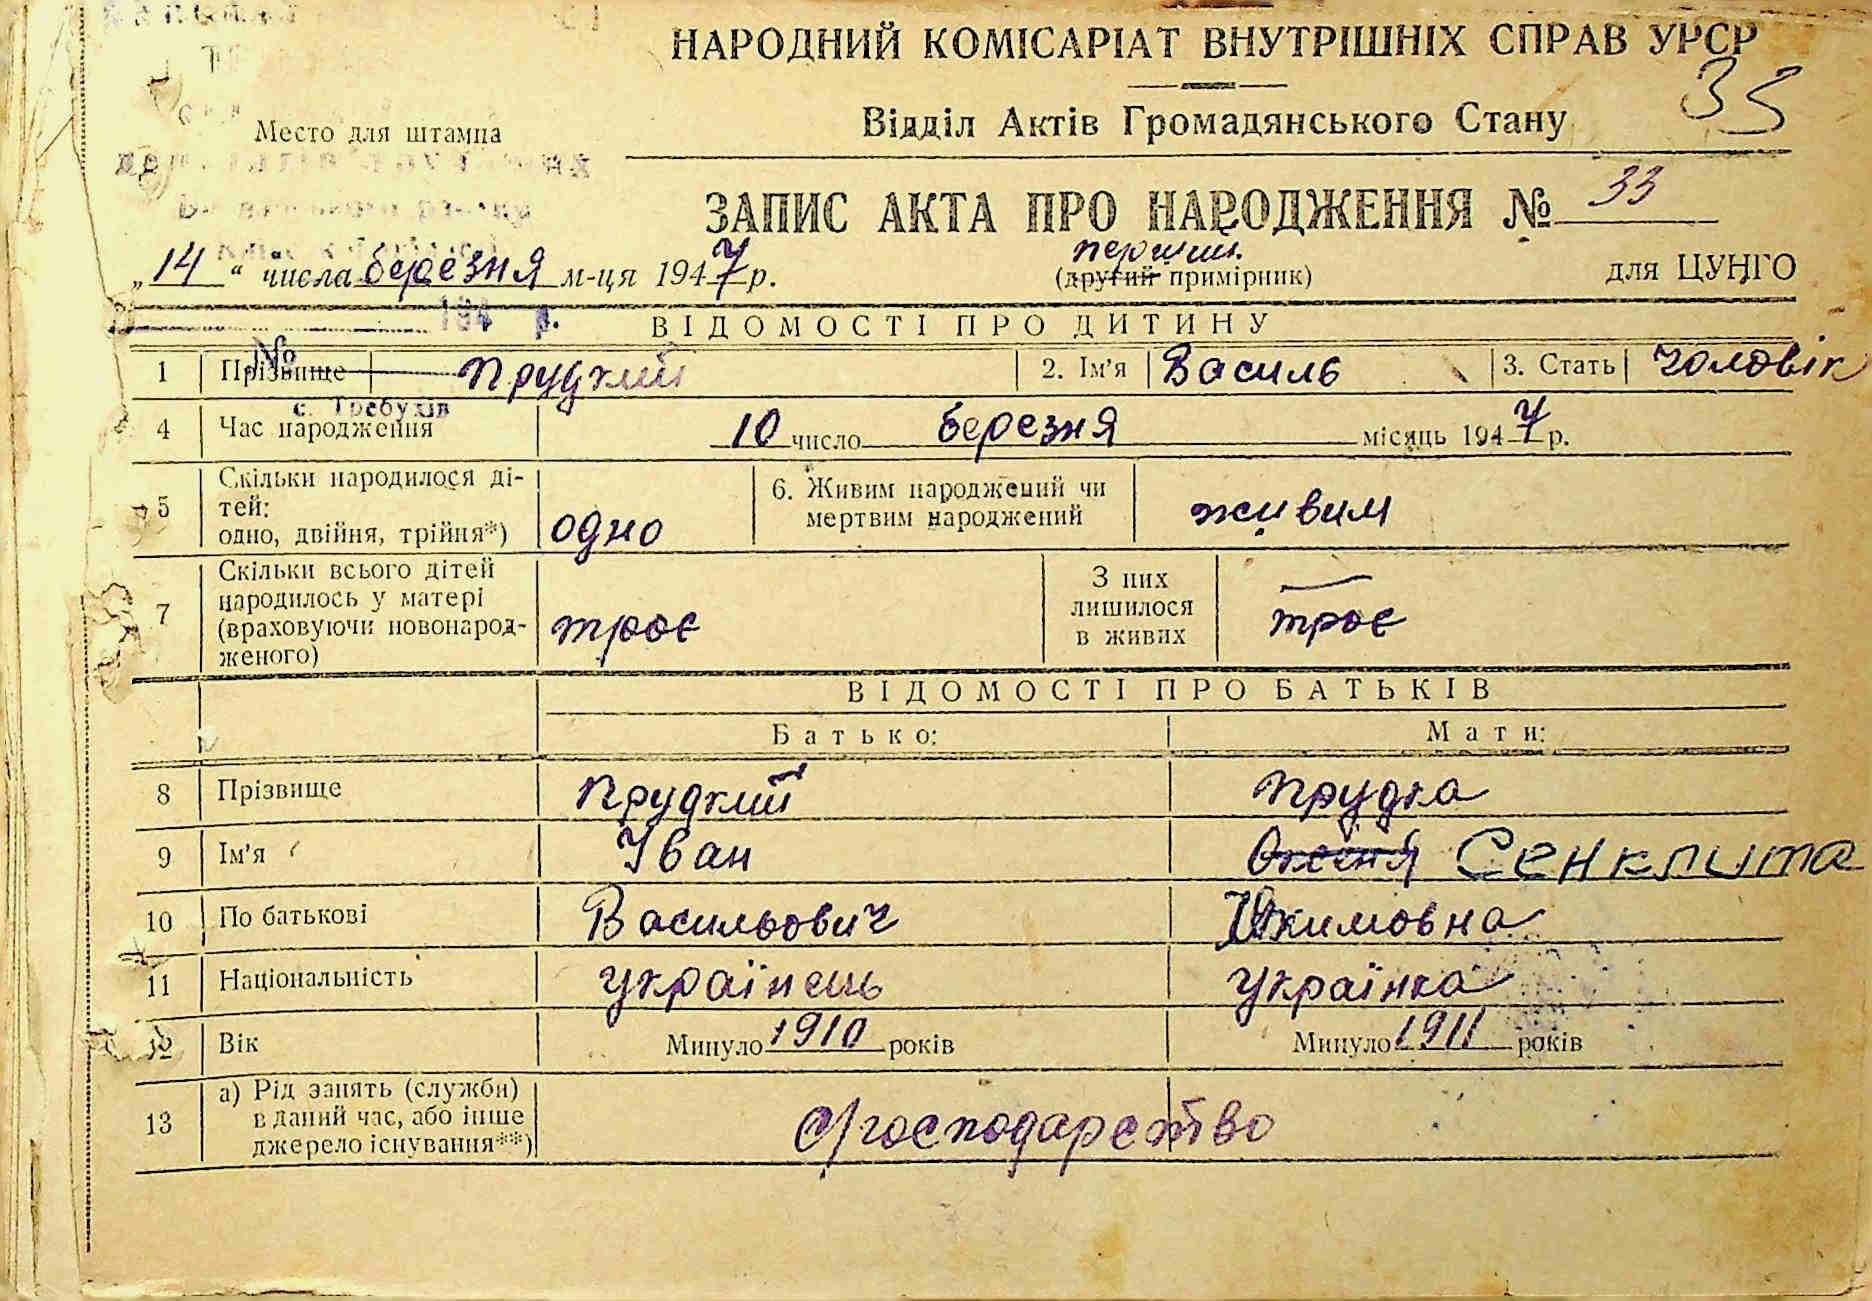 НАРОДНИЙ КОМІСАРІАТ ВНУТРІШНІХ СПРАВ УРСР
35
Відділ Актів Громадянського Стану
Место для штампа
ЗАПИС АКТА ПРО НАРОДЖЕННЯ № 33
перший
„14“ числа березня м-ця 1947 р. (другий примірник) для ЦУНГО
194 р.
ВІДОМОСТІ ПРО ДИТИНУ
№
1 Прізвище Прудкий 2. Ім'я Василь 3. Стать чоловік
с. Требухів
4 Час народження 10 число березня місяць 1947 р.
5 Скільки народилося ді-
тей:
одно, двійня, трійня*) одно 6. Живим народжений чи
мертвим народжений живим
7 Скільки всього дітей
народилось у матері
(враховуючи новонарод-
женого) троє З них
лишилося
в живих троє
ВІДОМОСТІ ПРО БАТЬКІВ
Батько: Мати:
8 Прізвище Прудкий Прудка
9 Ім'я Іван Оксеня Сенклита
10 По батькові Васильович Якимовна
11 Національність українець українка
12 Вік Минуло 1910 років Минуло 1911 років
13 а) Рід занять (служби)
в даний час, або інше
джерело існування**) с/господарство